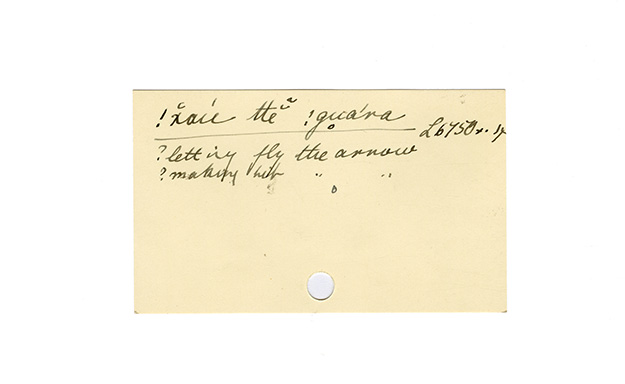 !k̆aií ttĕ̆ !gu̥ára L6750r. 
? letting fly the arrow
? making hit " "